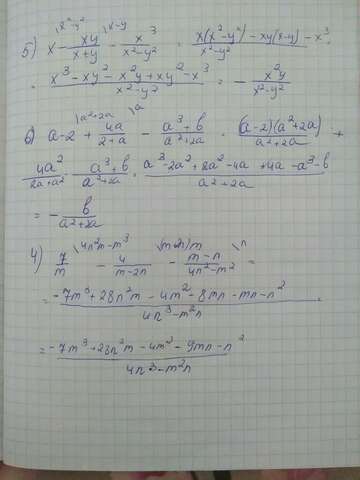 x²-y² x-y
5) x - xy/x+y - x³/x²-y² = x(x²-y²) - xy(x-y) - x³/x²-y²
= x³ - xy² - x²y + xy² - x³/x²-y² = - x²y/x²-y²
a²+2a a
6) a-2 + 4a/2+a - a³+b/a²+2a = (a-2)(a²+2a)/a²+2a +
4a²/2a+a² - a³+b/a²+2a = a³-2a²+2a²-4a+4a-a³-b/a²+2a
= - b/a²+2a
4n²m-m³ (m+2n)m n
4) 7/m - 4/m-2n - m-n/4n²-m² =
= -7m³+28n²m-4m²-8mn-mn-n²/4n³-m²n
= -7m³+28n²m-4m²-9mn-n²/4n³-m²n